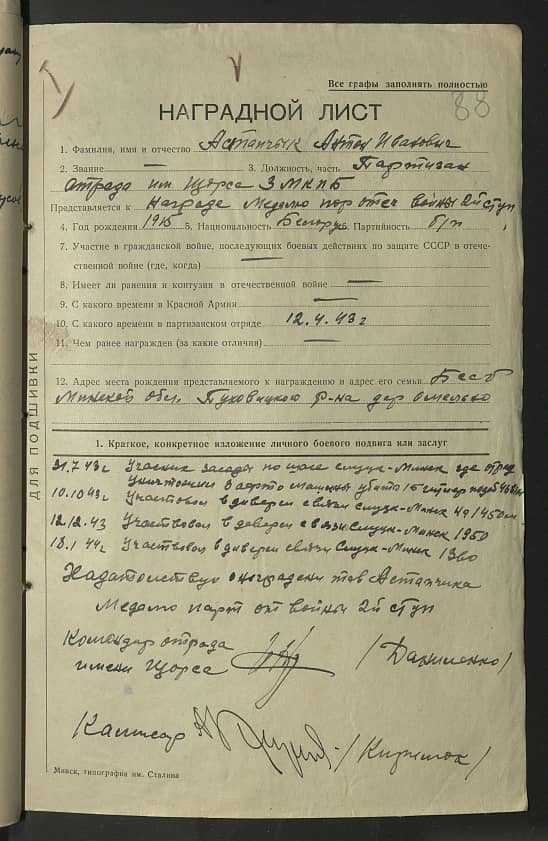 Все графы заполнять полностью
88
НАГРАДНОЙ ЛИСТ
1. Фамилия, имя и отчество Астанчык Антон Иванович
2. Звание — 3. Должность, часть Партизан
отряда им Щорса 3 МКПБ
Представляется к Награде Медалю пар отеч войны 2й ступ
4. Год рождения 1915 5. Национальность Белорус 6. Партийность б/п
7. Участие в гражданской войне, последующих боевых действиях по защите СССР в отече-
ственной войне (где, когда) —
8. Имеет ли ранения и контузия в отечественной войне —
9. С какого времени в Красной Армии —
10. С какого времени в партизанском отряде 12.4.43 г
11. Чем ранее награжден (за какие отличия) —
12. Адрес места рождения представляемого к награждению и адрес его семьи
Минской обл. Пуховицкого р-на дер
ДЛЯ ПОДШИВКИ
1. Краткое, конкретное изложение личного боевого подвига или заслуг
31.7 43 г Участник засады по шасе слуцк-Минск где отряд
10.10 43 г Участвовал в диверси связи слуцк-Минск
12.12.43 Участвовал в диверси связи Слуцк-Минск 1950
18.1 44 г Участвовал в диверси связи Слуцк-Минск
Хадатойствую о наградени тов Астанчика
Медалю парт от войны 2й ступ
Командир отряда
имени Щорса /Даниленко/
Камисар
Минск, типография им. Сталина